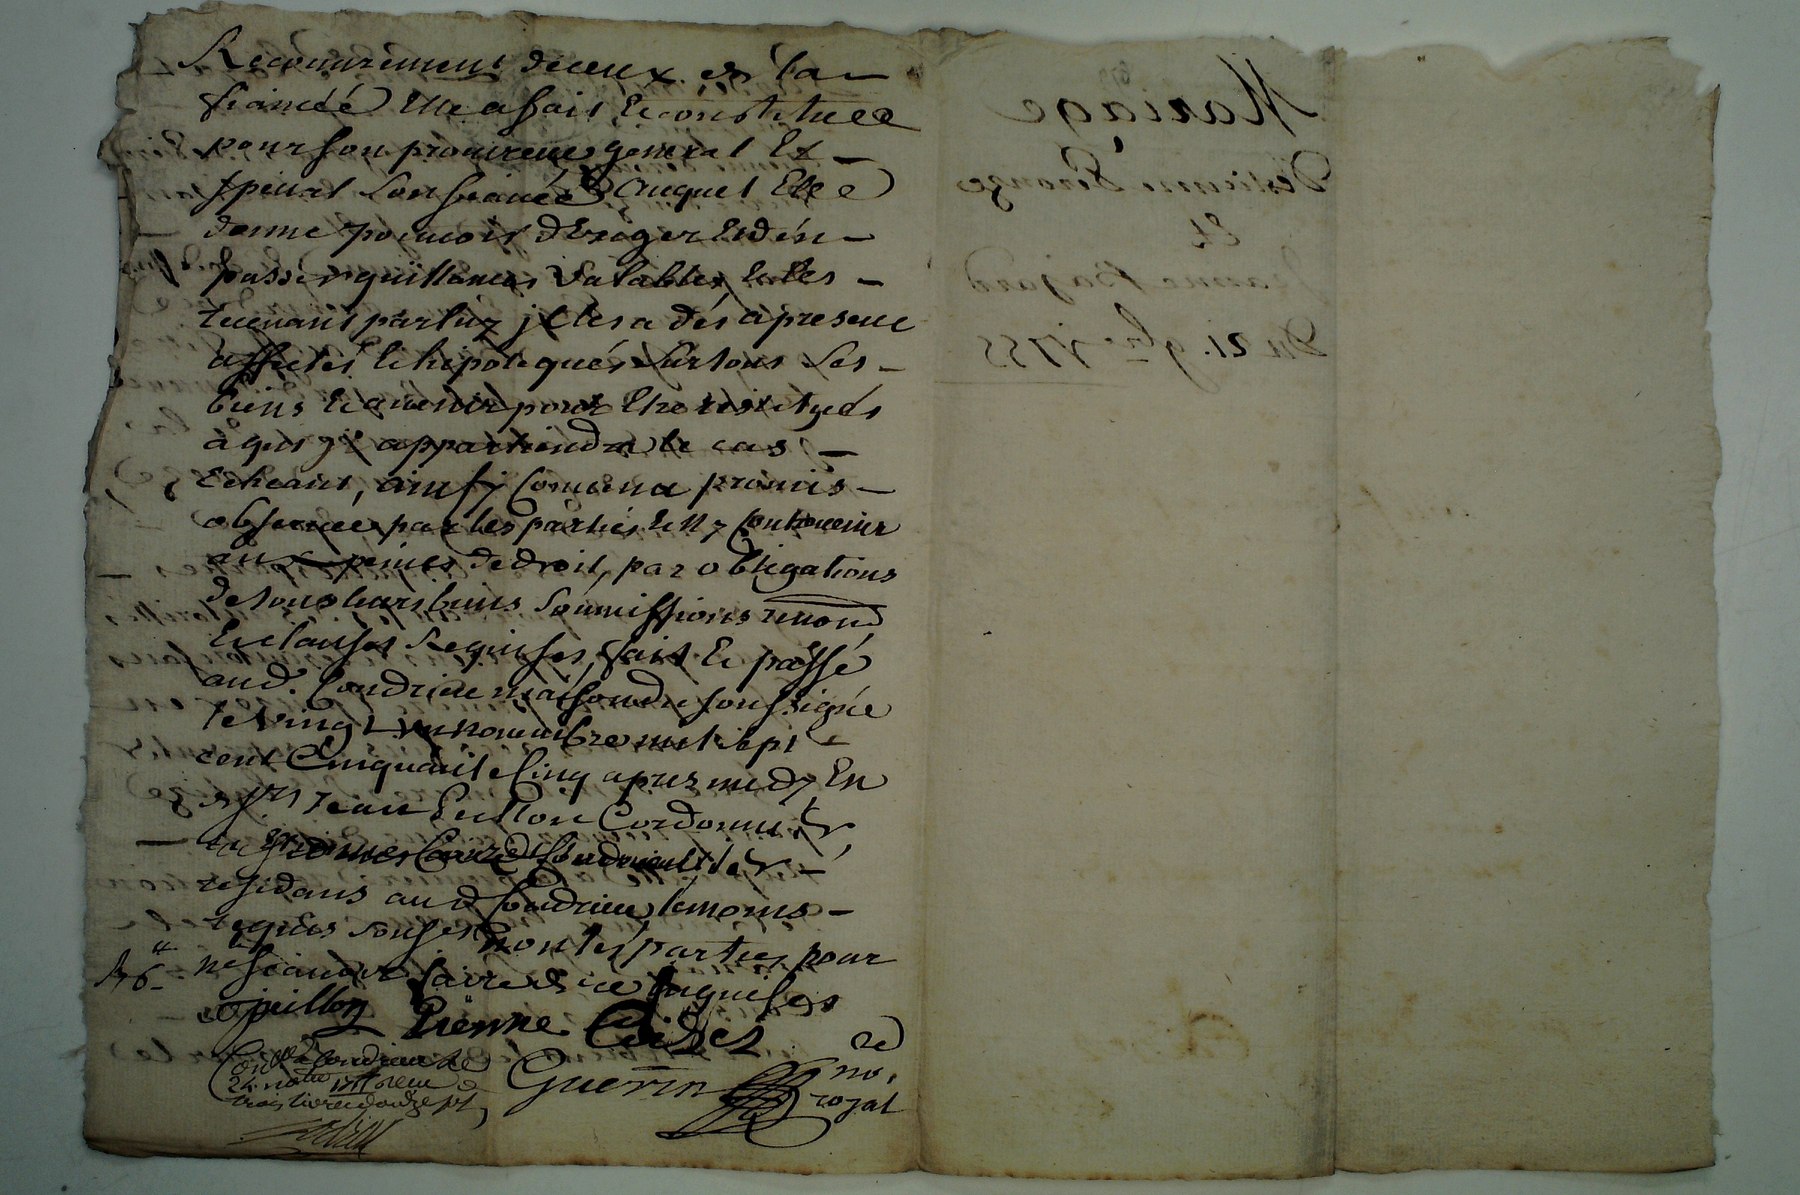 Recouvrement diceux et la
fiancée Elle a fait & constitué
pour son procureur general Et
special son fiancé auquel Elle
donne pouvoir d'Exiger Et d'en
passer quittances valables, Et les
recevant par luy il les a dés apresent
affectés & hipotequés sur tous ses
biens & avenir pour Etre restitués
à qui il appartiendra le cas
Echeant, ainsy Convenu promis
observer par les parties & n'y Contrevenir
aux peines de droit, par obligations
de tous leurs biens soumissions renond
& clauses Requises, fait & passé
aud. Condrieu maison du soussigné
le vingt un novembre mil sept
cent Cinquante Cinq apres midy En
pces Jean Cordonnier,
residans aud Condrieu temoins
requis soussignés non les parties pour
ne scavoir faire de ce Enquises
Guerin
no.
royal
Conllé a Condrieu le
24 nobre 1755 receu
trois livres douze s
Mariage
D'étienne
Et
Jeanne Bajard
Du 21. 9bre 1755